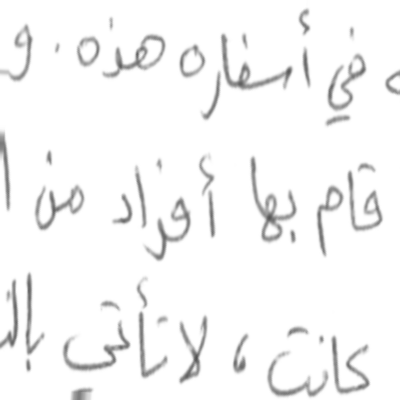 في أسفاره هذه . و
قام بها أفراد من ا
كانت ، لا تأتي بالـ